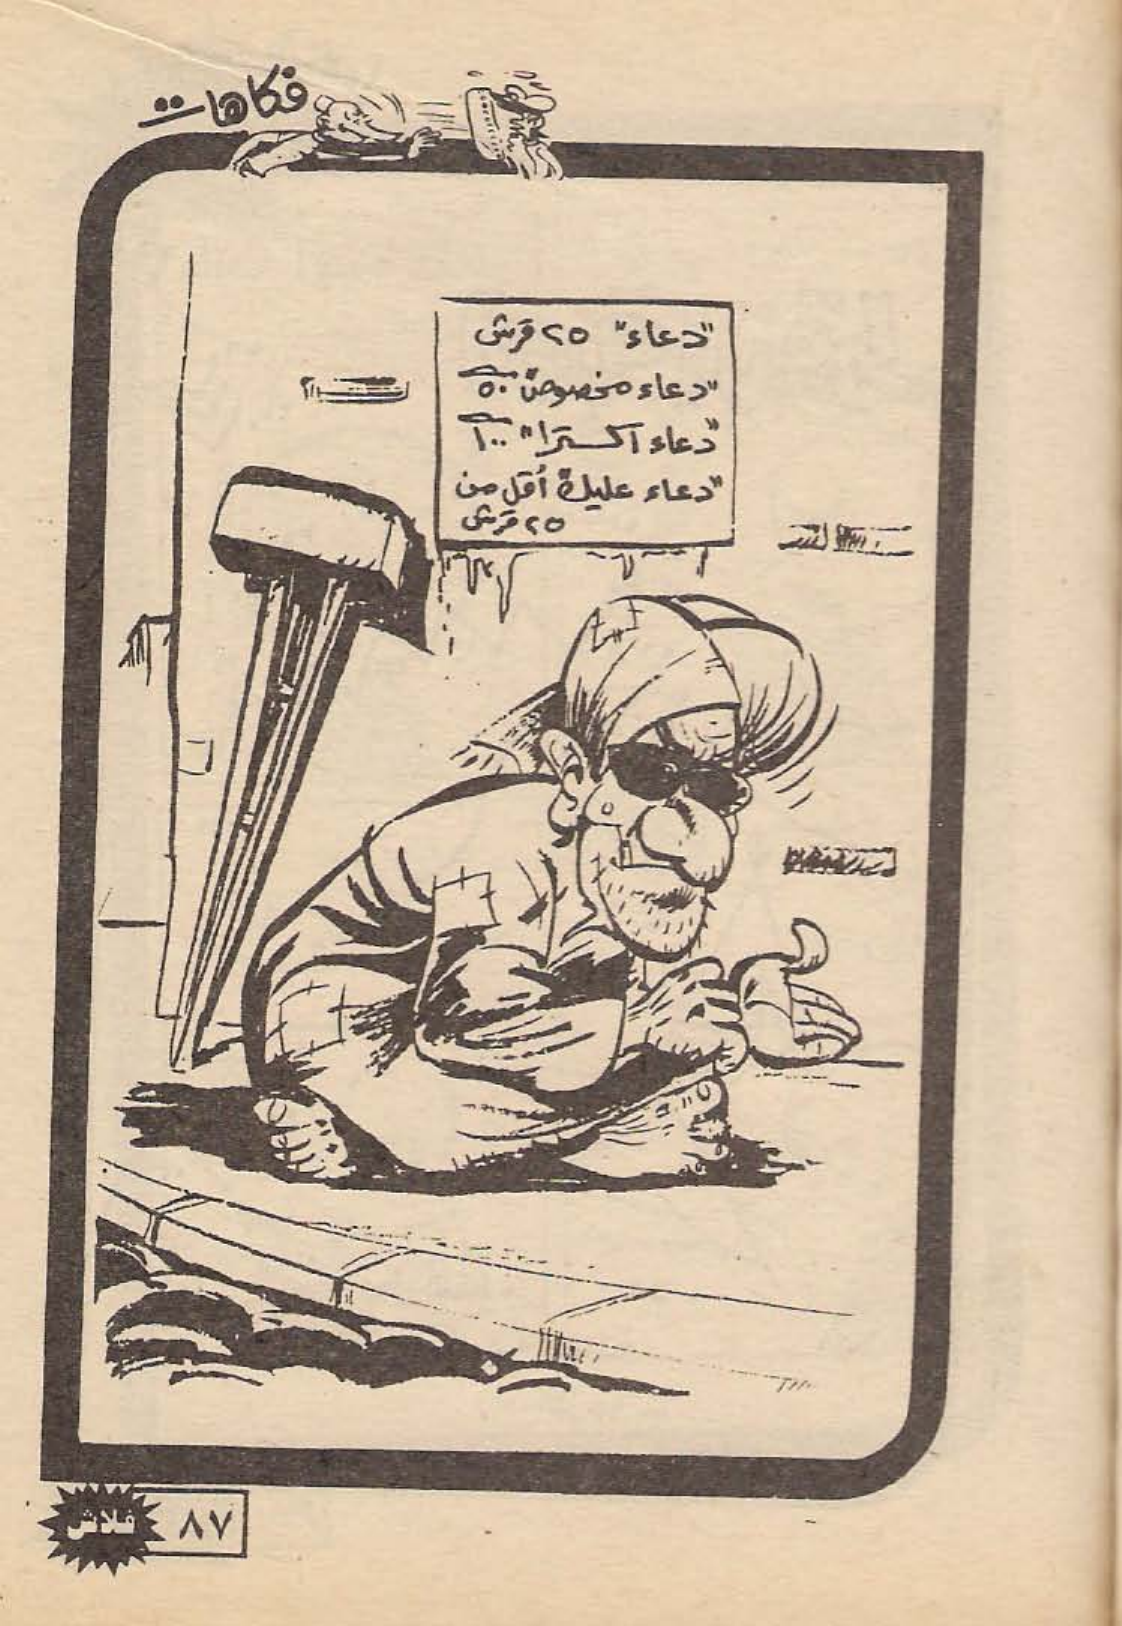 فكاهات
"دعاء" ٢٥ قرش
"دعاء مخصوص" ٥٠
"دعاء اكسترا" ١٠٠
"دعاء عليك" أقل من
٢٥ قرش
فلاش ٨٧